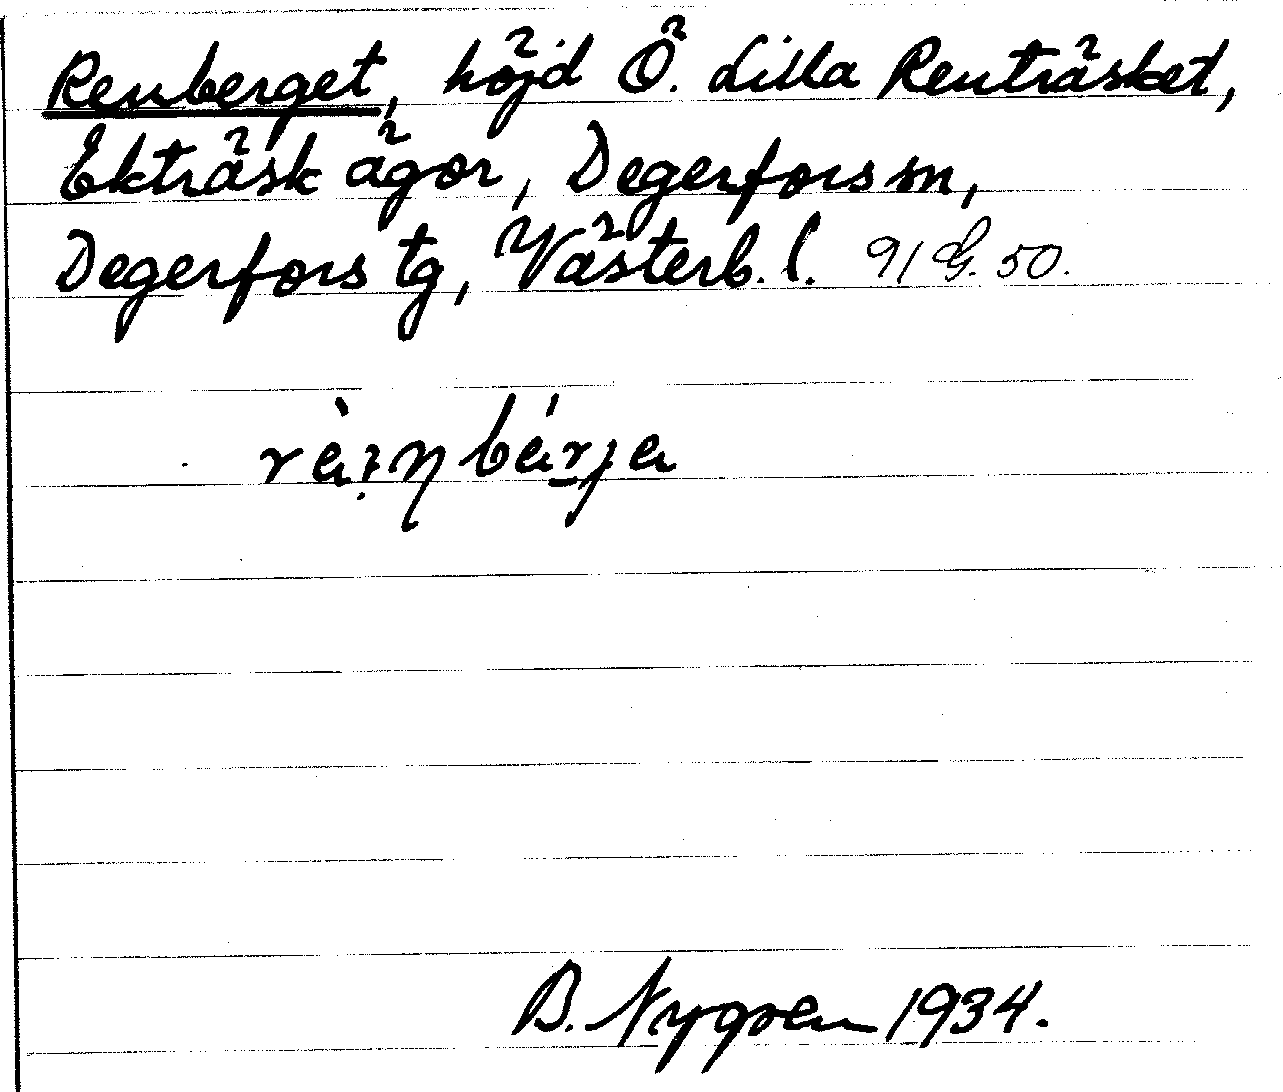 Renberget, höjd Ö. Lilla Renträsket,
Ekträsk ägor, Degerfors sn,
Degerfors tg, Västerb. l. 9/G. 50.
B. Nygren 1934.